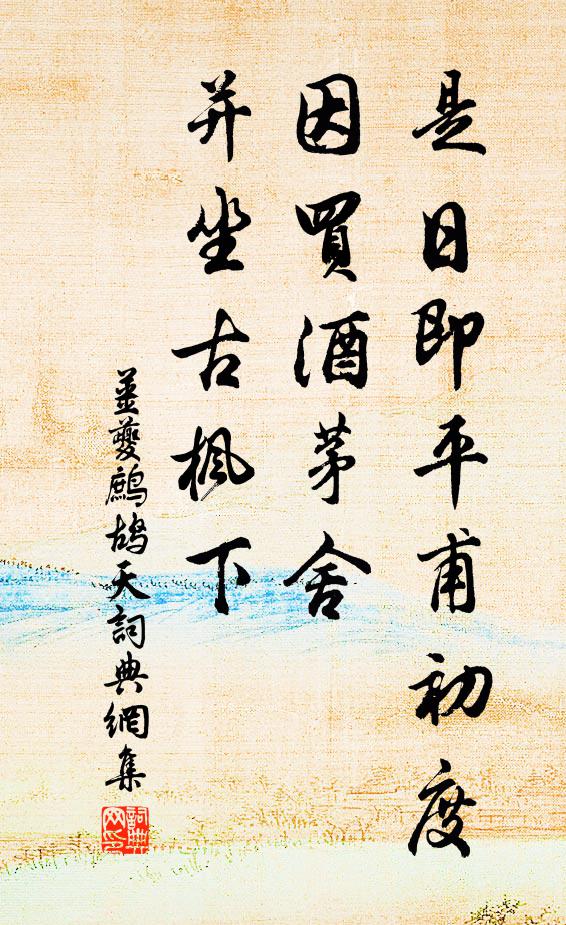 是日即平甫初度
因買酒茅舍
并坐古枫下
姜夔鷓鴣天詞典網集
詞典网印